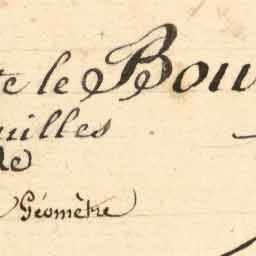 te le Bou
uilles
de
Géomètre